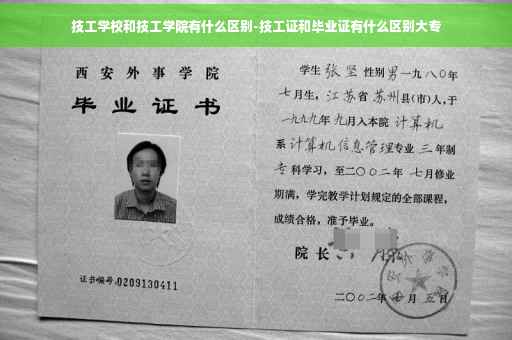 技工学校和技工学院有什么区别-技工证和毕业证有什么区别大专
西安外事学院
毕业证书
证书编号:0209130411
学生 张坚 性别男一九八〇年
七月生，江苏省 苏州县(市)人,于
一九九九年 九月入本院 计算机
系 计算机信息管理专业 三 年制
专科学习，至二〇〇二年 七月修业
期满，学完教学计划规定的全部课程，
成绩合格，准予毕业。
院长
二〇〇二年 月 五日